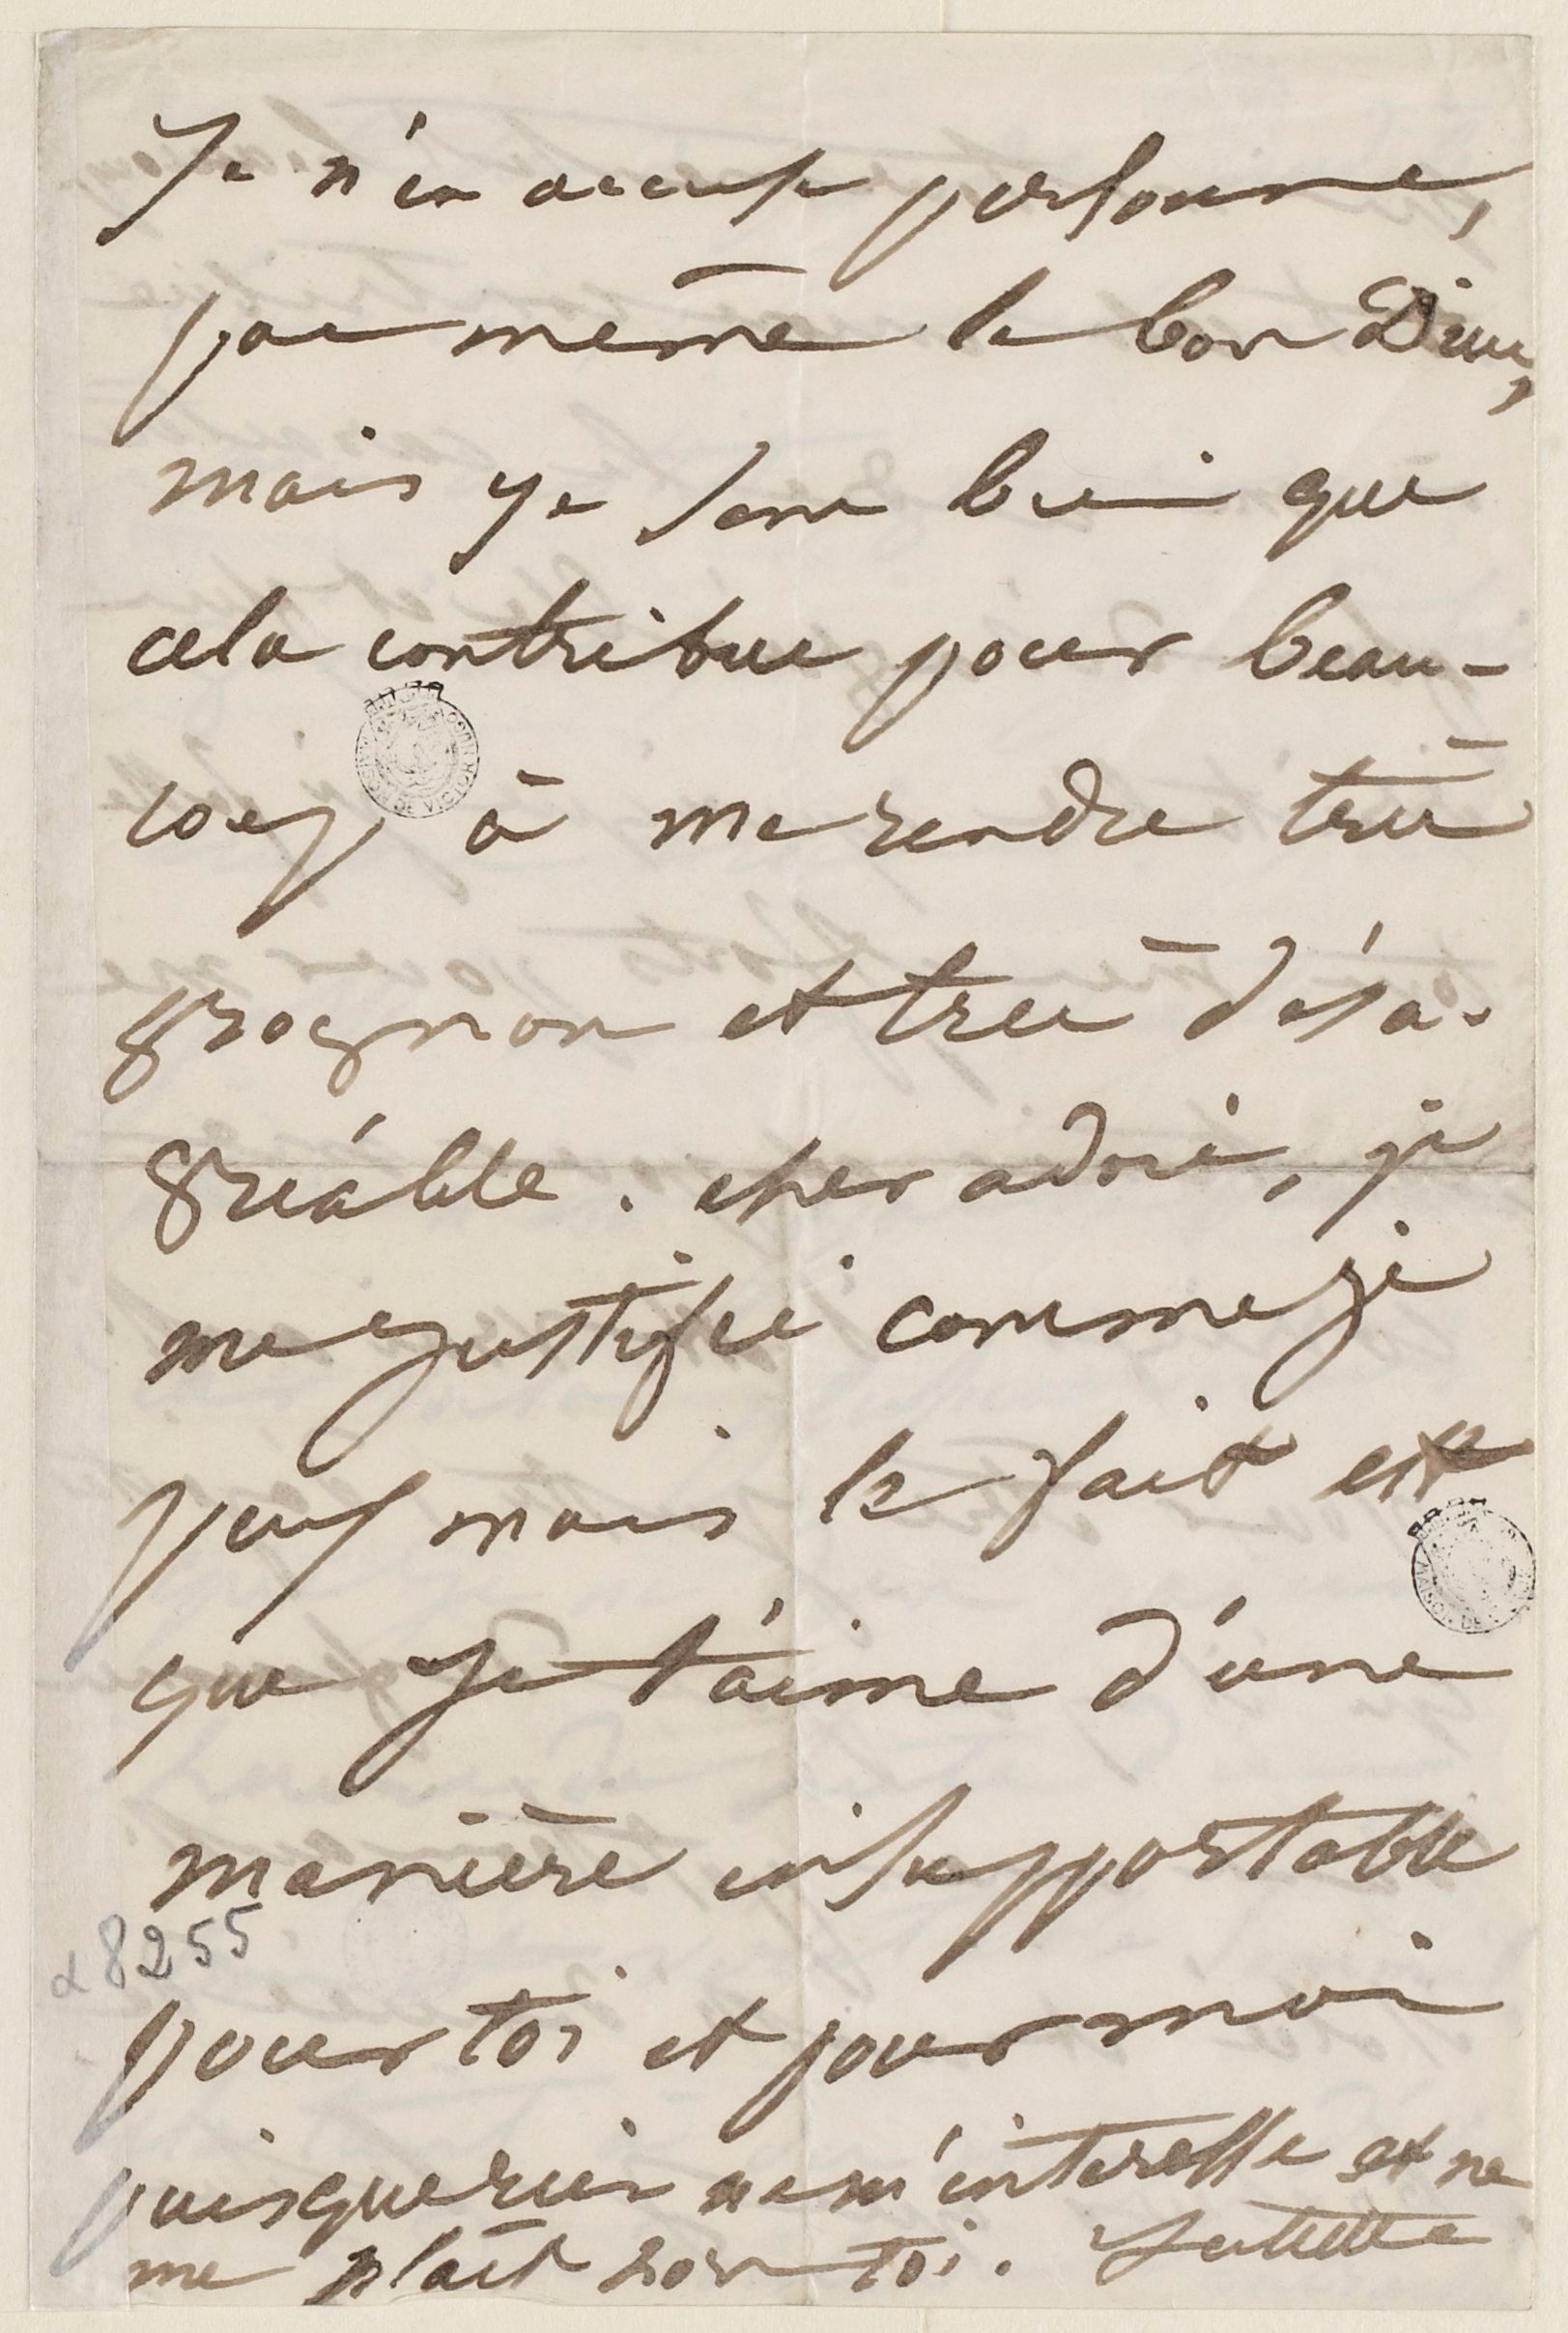 Je n'en accuse personne,
pas même le bon Dieu,
mais je sens bien que
cela contribue pour beau-
coup à me rendre très
grognon et très désa-
gréable. cher adoré, je
me justifie comme je
peux mais le fait est
que je t'aime d'une
manière insupportable
α 8255
pour toi et pour moi
puisque rien ne m'intéresse et ne
me plaît hors toi. Juliette